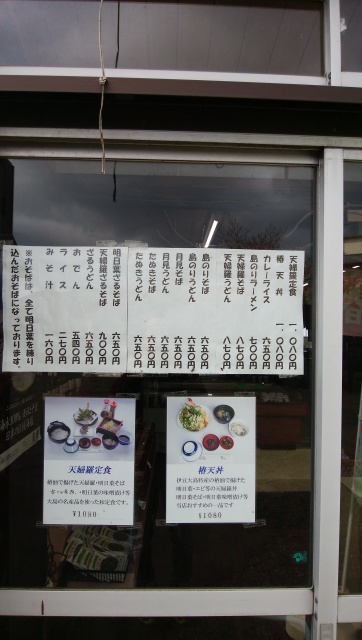 天婦羅定食 一、〇八〇円
椿天丼 一、〇八〇円
カレーライス 六五〇円
島のりラーメン 七〇〇円
天婦羅そば 八七〇円
天婦羅うどん 八七〇円
島のりそば 六五〇円
島のりうどん 六五〇円
月見そば 六五〇円
月見うどん 六五〇円
たぬきそば 六五〇円
たぬきうどん 六五〇円
明日葉ざるそば 六五〇円
天婦羅ざるそば 九〇〇円
ざるうどん 六五〇円
おでん 五四〇円
ライス 二七〇円
みそ汁 一六〇円
※おそばは、全て明日葉を練り
込んだおそばになっております。
天婦羅定食
椿油で揚げた天婦羅・明日葉そば
・明日葉の味噌漬け等
大島の名産品を使った和定食です。
¥1080
椿天丼
伊豆大島特産の椿油で揚げた
明日葉・エビ等の天婦羅丼
明日葉そば・明日葉味噌漬け等
当店おすすめの一品です
¥1080